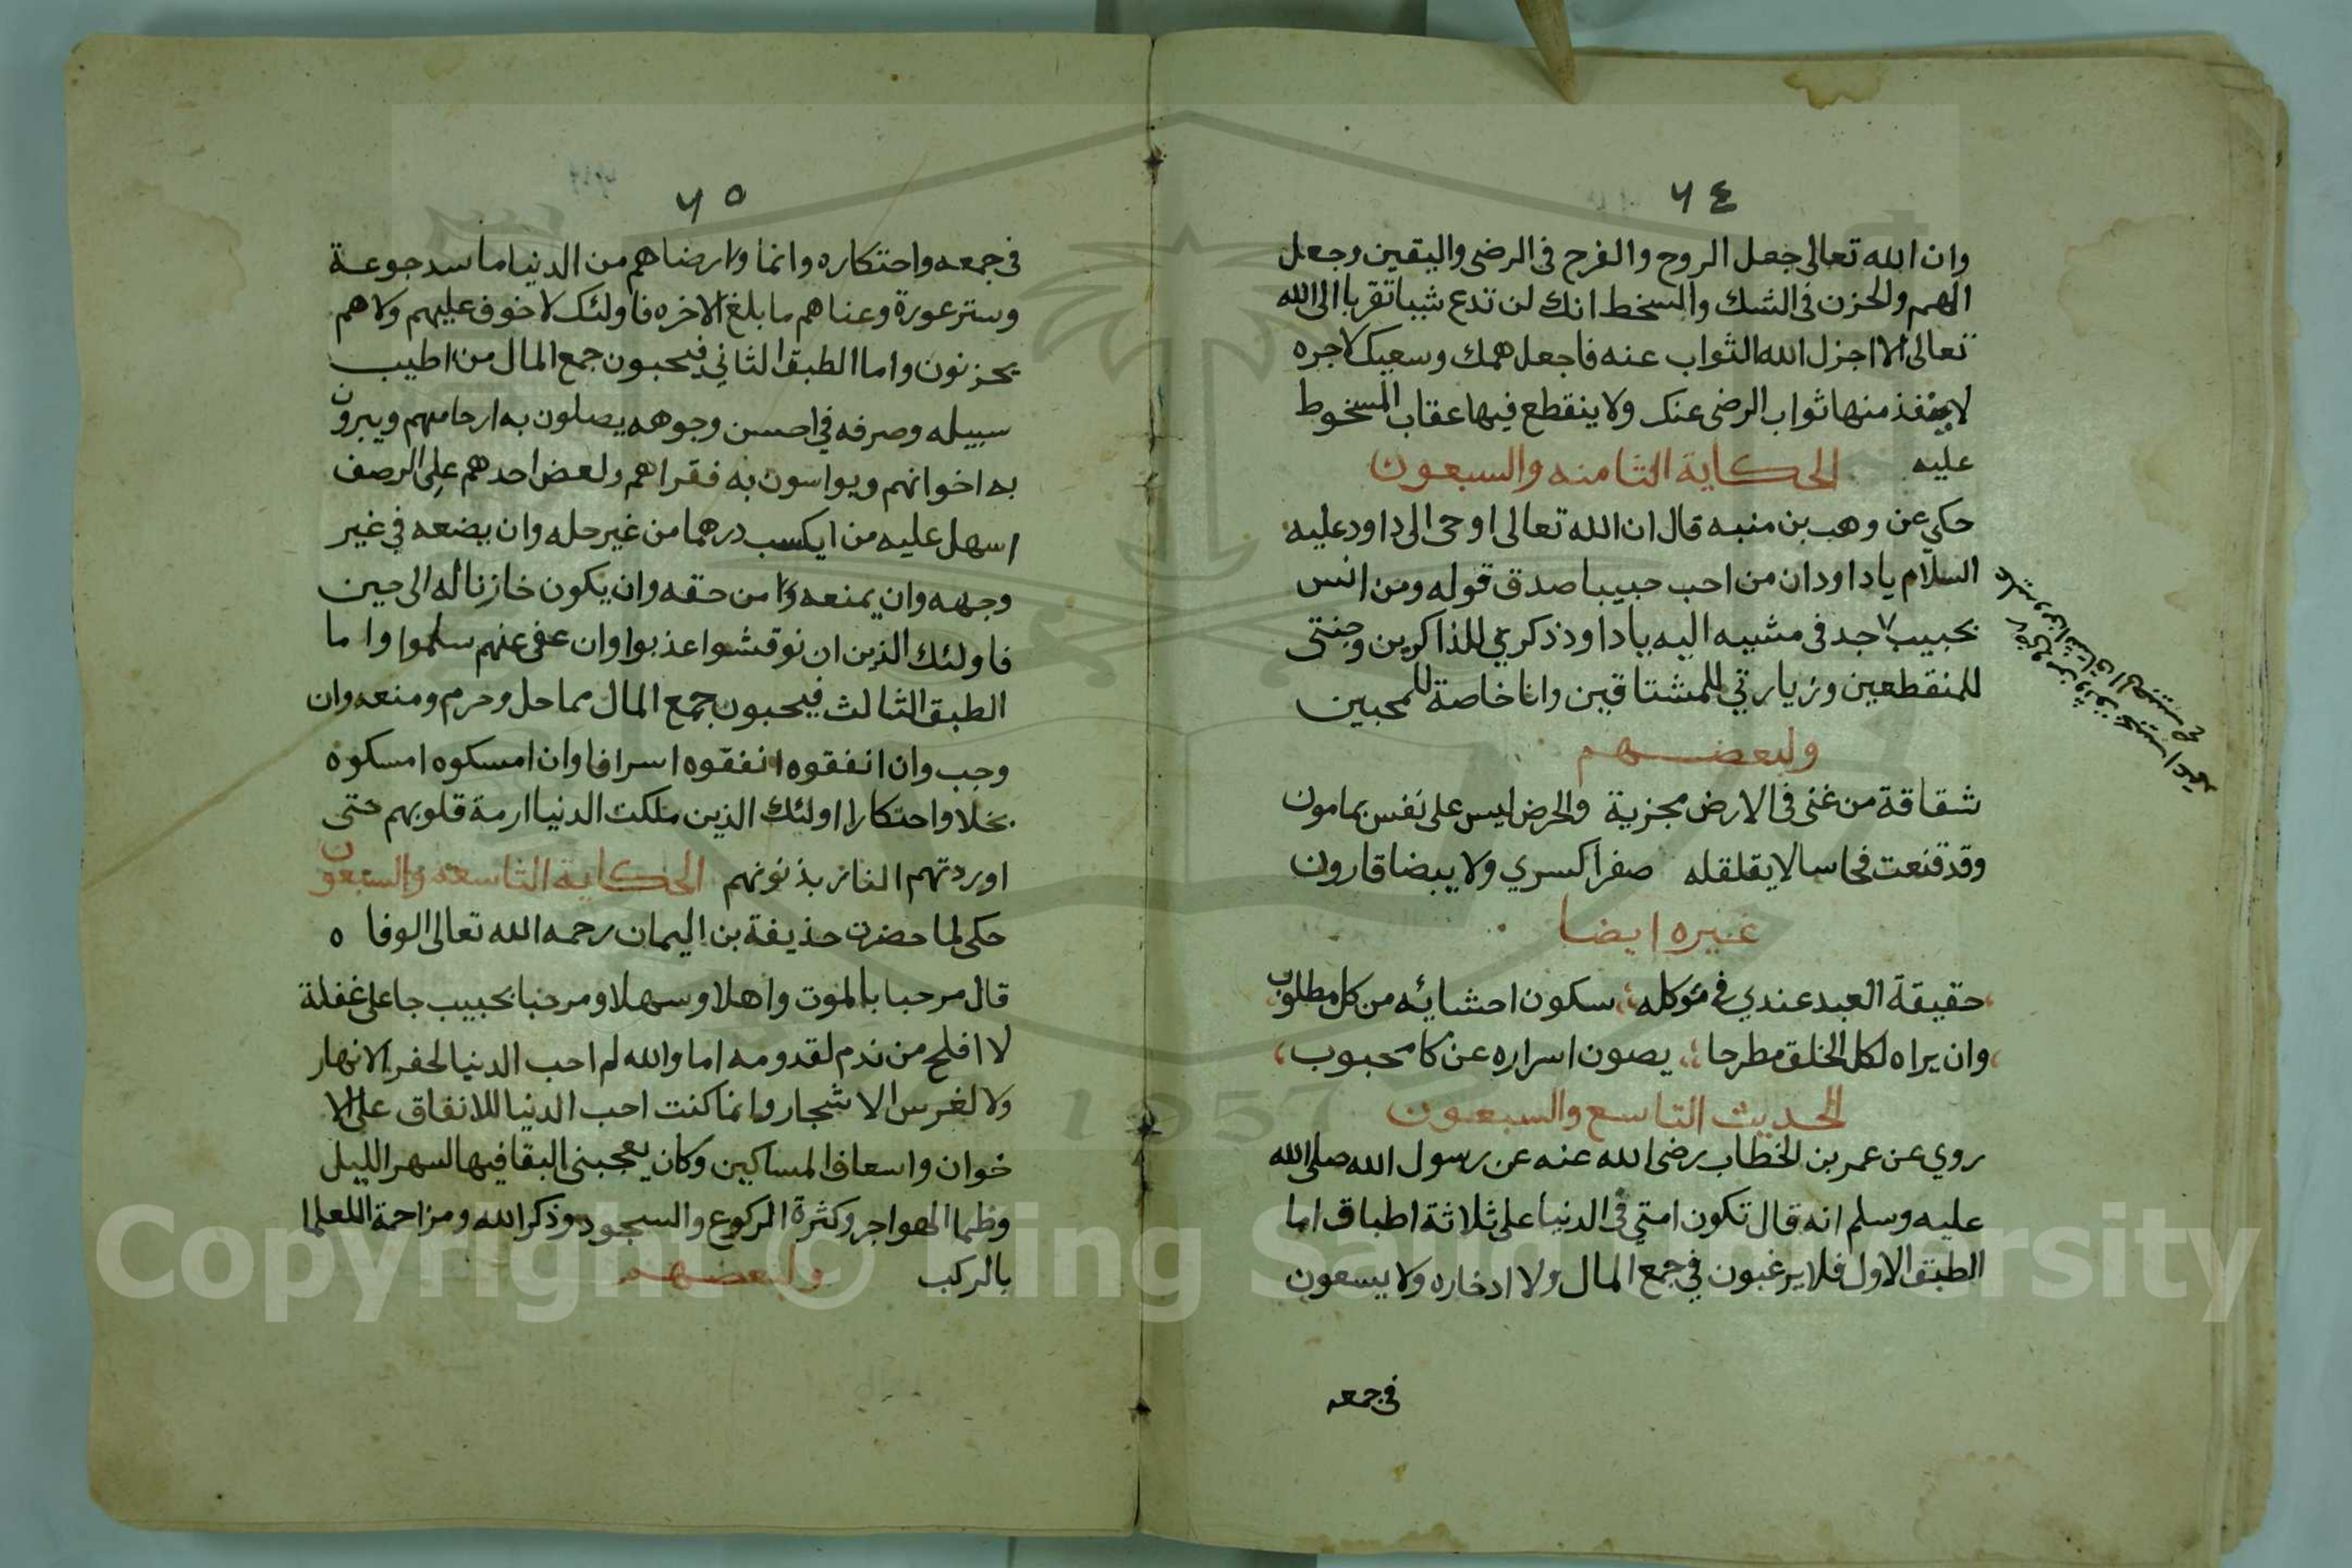 ٦٤
وان الله تعالى جعل الروح والفرح فى الرضى واليقين وجعل
الهم والحزن فى الشك والسخط انك لن تدع شيا تقربا الى الله
تعالى الا اجزل الله الثواب عنه فاجعل همك وسعيك لاجره
لا ينفذ منها ثواب الرضى عنك ولا ينقطع فيها عقاب المسخوط
عليه الحكاية الثامنه والسبعون
حكي عن وهب بن منبه قال ان الله تعالى اوحى الى داود عليه
السلام يا داود ان من احب حبيبا صدق قوله ومن انس
بحبيب جد فى مشيه اليه يا داود ذكري للذاكرين وجنتى
للمنقطعين وزيارتي للمشتاقين وانا خاصة للمحبين
ولبعضهم
شقاقة من غنى فى الارض مجزية والحرص ليس على نفس بمامون
وقد قنعت فحاسا لا يقلقله صفرا كسري ولا بيضا قارون
غيره ايضا
حقيقة العبد عندي فى توكله سكون احشائه من كل مطلوب
وان يراه لكل الخلق مطرحا يصون اسراره عن كل محبوب
الحديث التاسع والسبعون
روي عن عمر بن الخطاب رضى الله عنه عن رسول الله صلى الله
عليه وسلم انه قال تكون امتي فى الدنيا على ثلاثة اطباق اما
الطبق الاول فلا يرغبون في جمع المال ولا ادخاره ولا يسعون
فى جمعه
٦٥
فى جمعه واحتكاره وانما ارضاهم من الدنيا ما سد جوعة
وستر عورة وغناهم ما بلغ الاخره فاولئك لا خوف عليهم ولا هم
يحزنون واما الطبق الثاني فيحبون جمع المال من اطيب
سبيله وصرفه في احسن وجوهه يصلون به ارحامهم ويبرون
به اخوانهم ويواسون به فقراهم ولعض احدهم على الرصف
اسهل عليه من ايكسب درهما من غير حله وان يضعه في غير
وجهه وان يمنعه من حقه وان يكون خازنا له الى حين
فاولئك الذين ان نوقشوا عذبوا وان عفى عنهم سلموا واما
الطبق الثالث فيحبون جمع المال مما حل وحرم ومنعه وان
وجب وان انفقوه انفقوه اسرافا وان امسكوه امسكوه
بخلا واحتكارا اولئك الذين ملكت الدنيا ازمة قلوبهم حتى
اوردتهم النار بذنوبهم الحكاية التاسعه والسبعون
حكى لما حضرت حذيفة بن اليمان رحمه الله تعالى الوفا ه
قال مرحبا بالموت واهلا وسهلا ومرحبا بحبيب جا على غفلة
لا افلح من ندم لقدومه اما والله لم احب الدنيا لحفر الانهار
ولا لغرس الاشجار وانما كنت احب الدنيا للانفاق على الا
خوان واسعاف المساكين وكان يعجبنى البقا فيها لسهر الليل
وظما الهواجر وكثرة الركوع والسجود وذكر الله ومزاحمة العلما
بالركب ولبعضهم
Copyright © King Saud University
1957